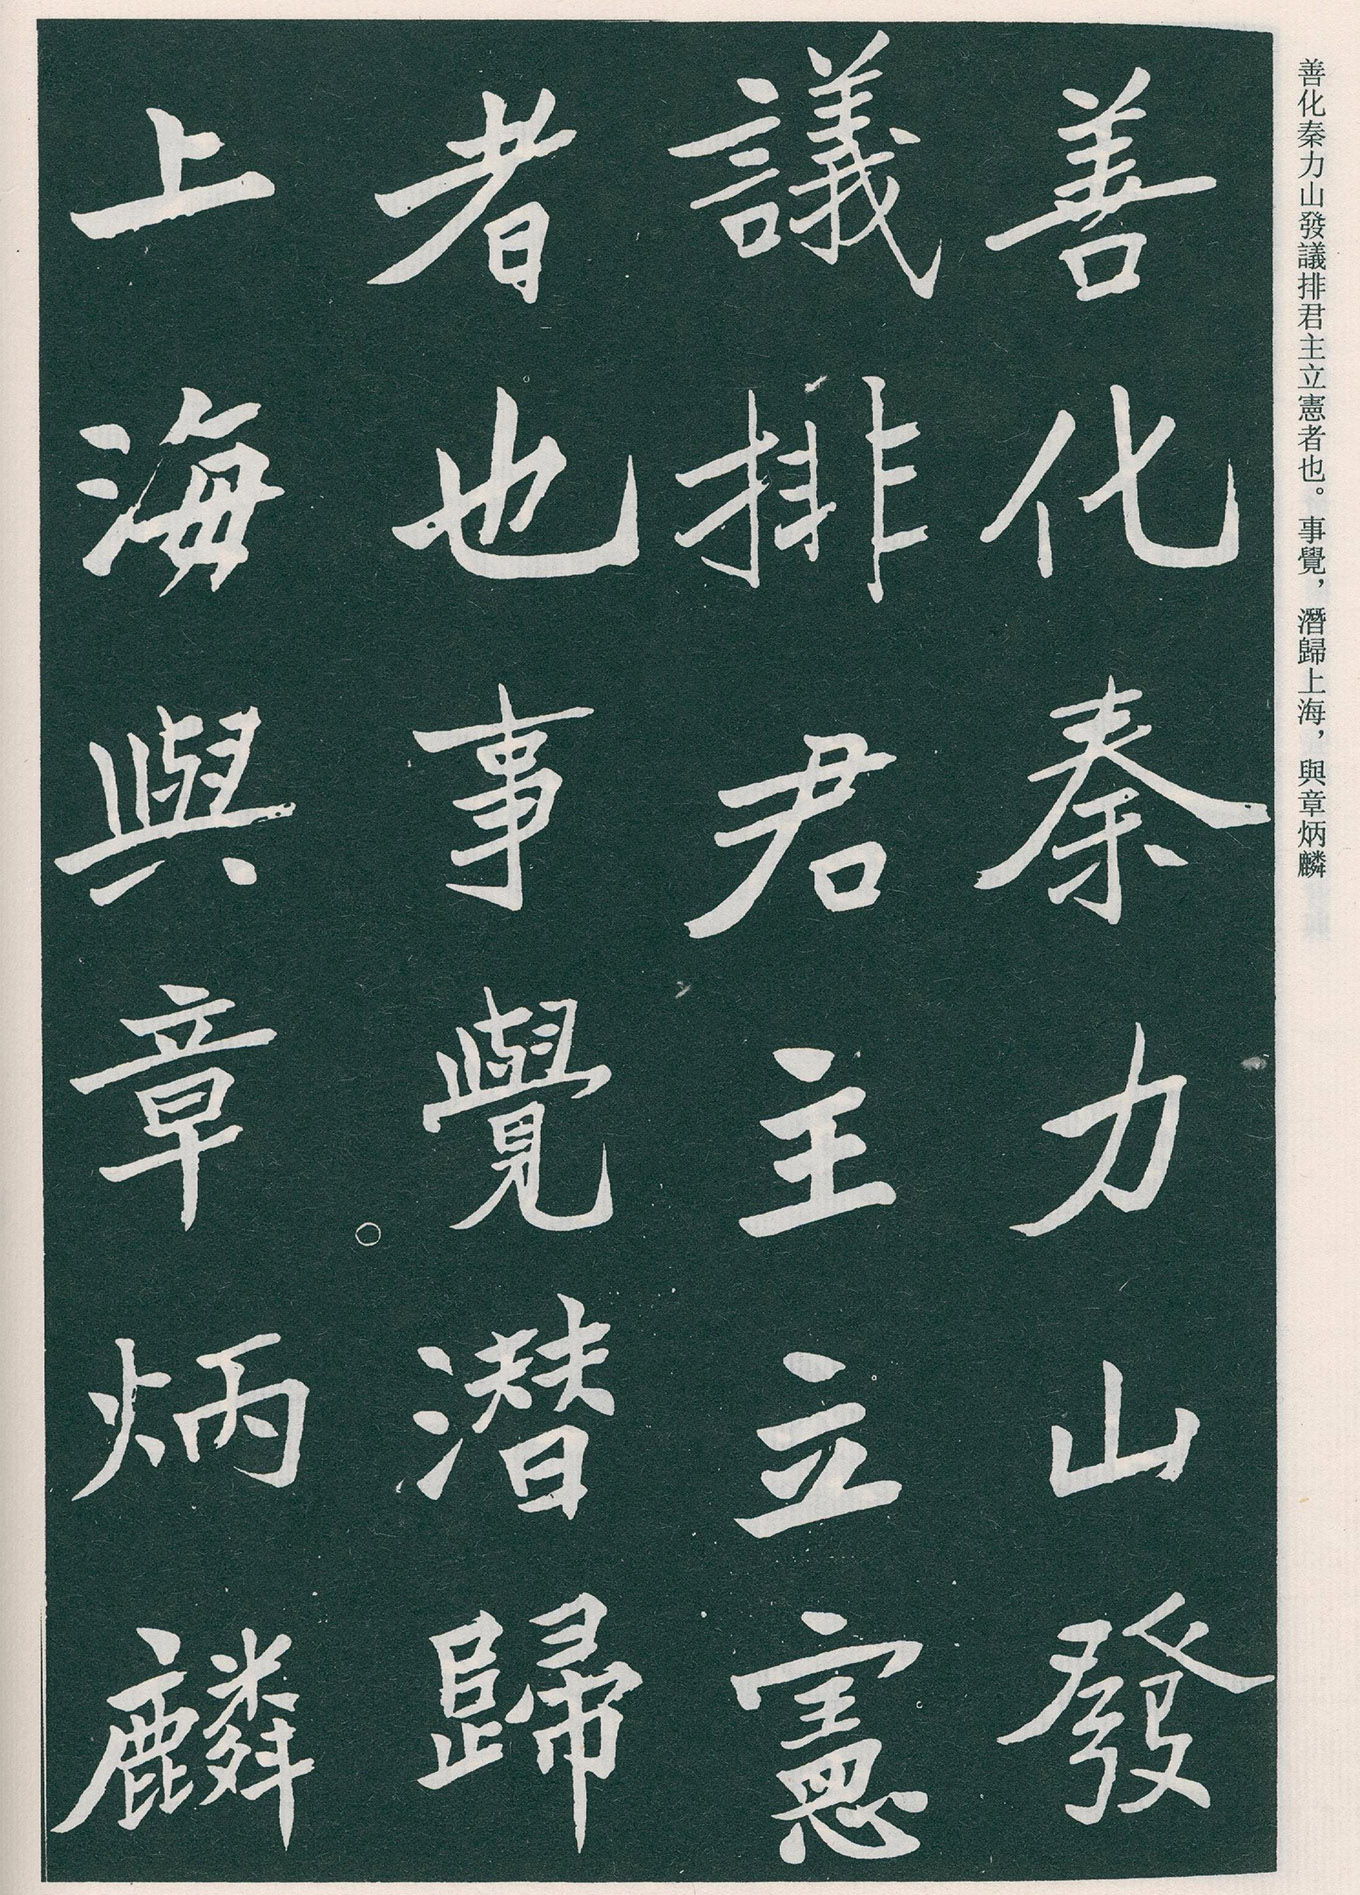 善化秦力山發議排君主立憲者也。事覺，潛歸上海，與章炳麟
善化秦力山發
議排君主立憲
者也事覺潛歸
上海與章炳麟